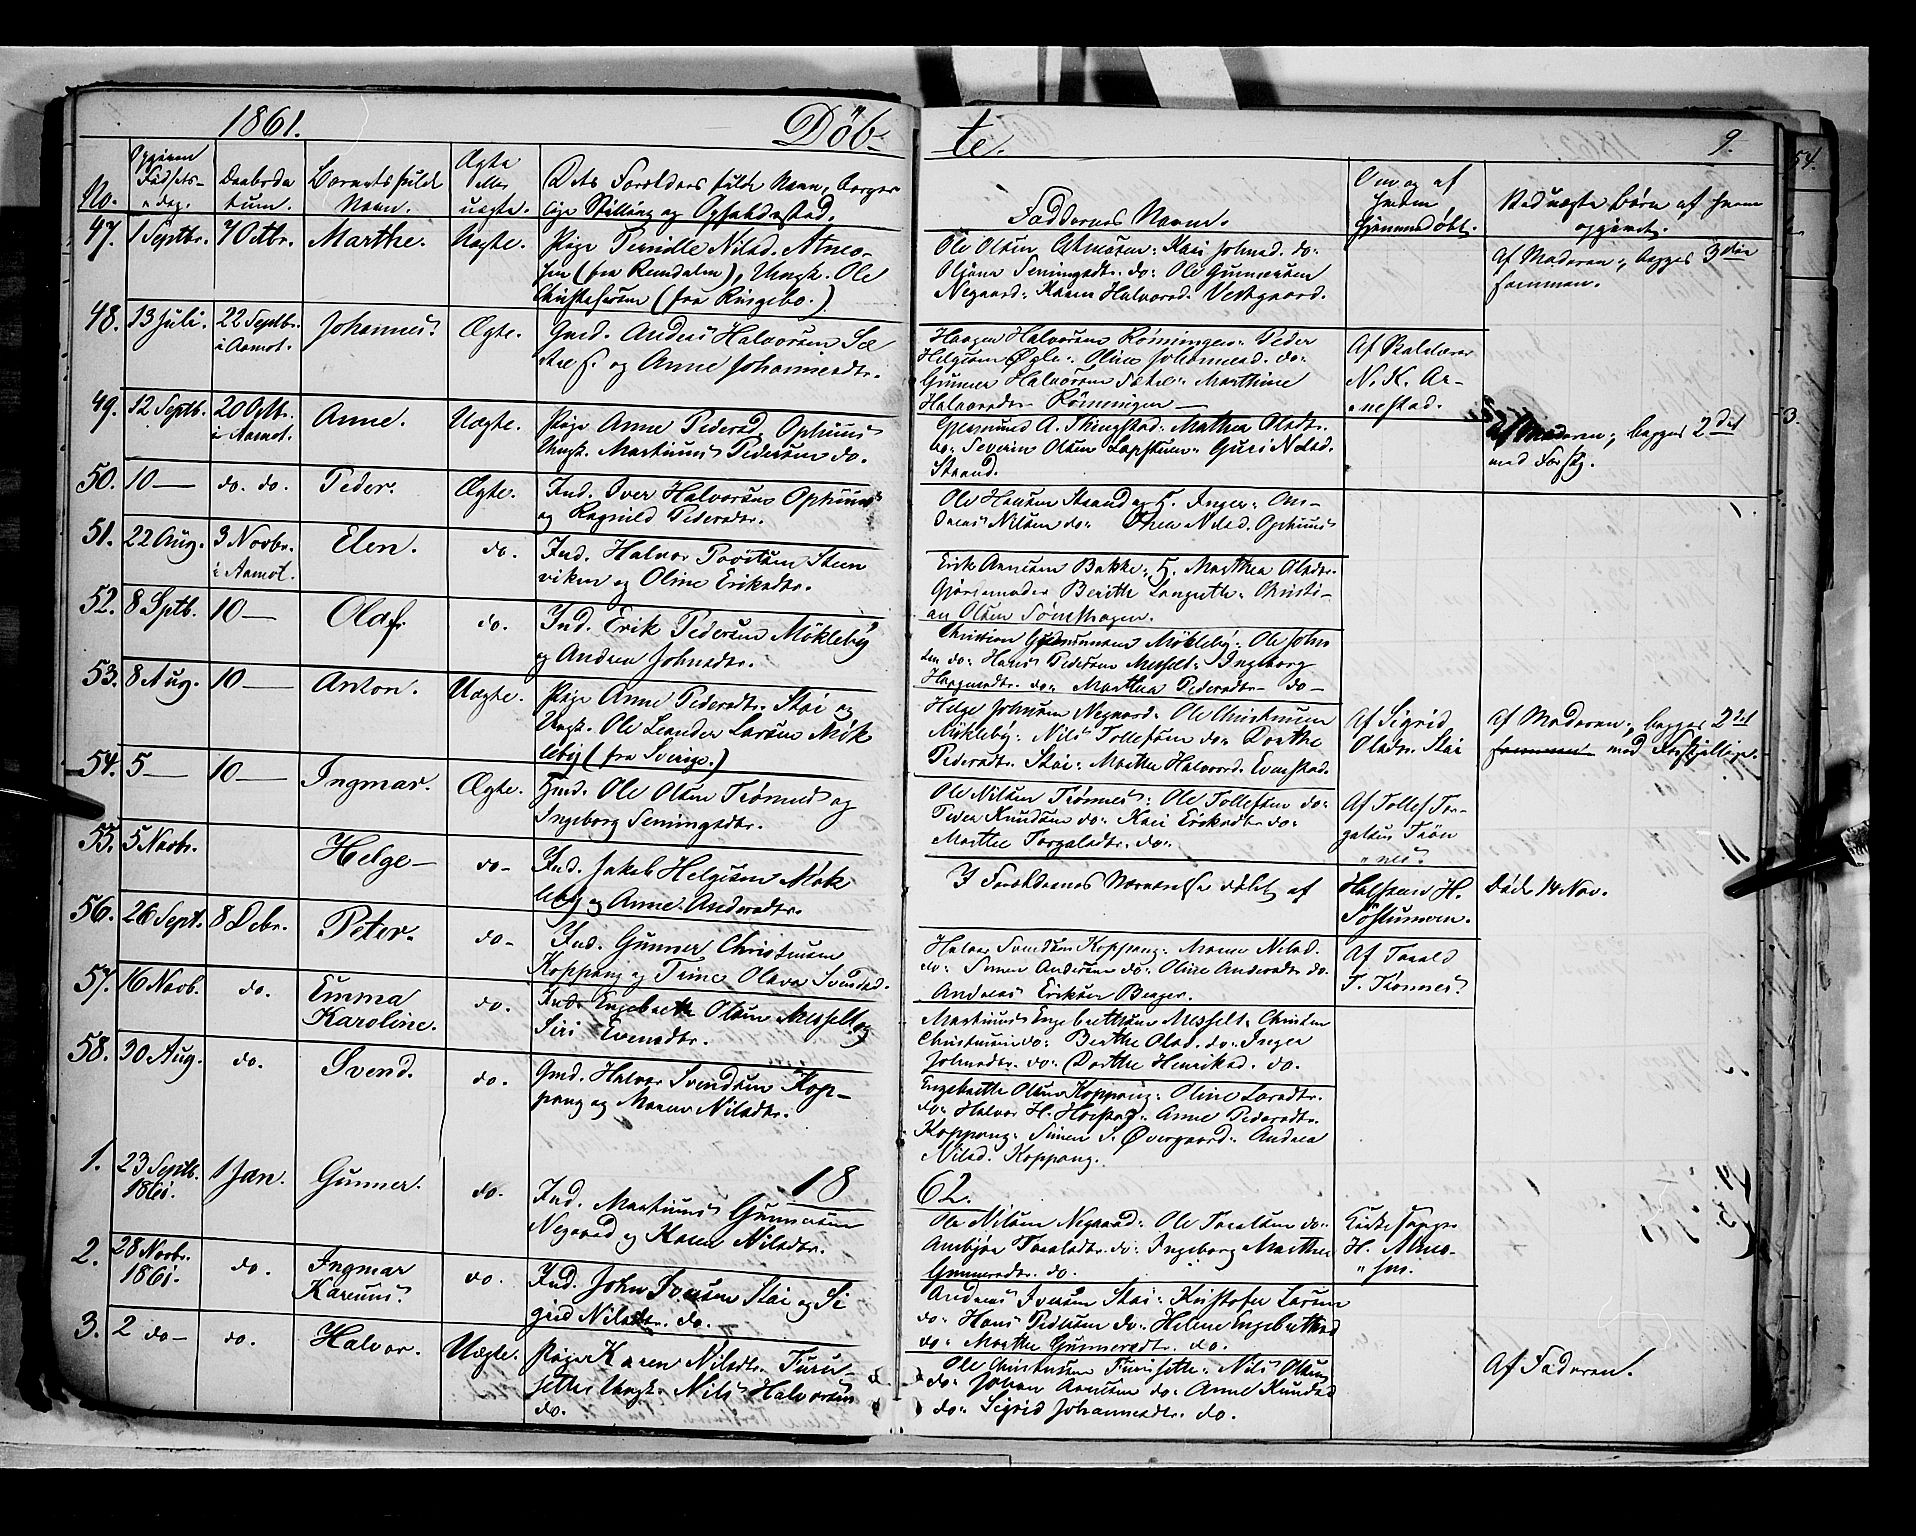 1861.
Döb-
te.
9.
54.
No.
Opgiven Fødsels-dag.
Daabsda-tum.
Barnets fulde Navn.
Ægte eller uægte.
Dets Forældres fulde Navn, borger-
lige Stilling og Opholdssted.
Faddernes Navne.
Om og af hvem hjemmedøbt.
Ved uægte Børn af hvem opgivet.
47. 1 Septbr. 7 Octbr. Marthe. Uægte.
Pige Pernille Nilsd. Atneo-
sen (fra Rendalen), Ungk. Ole
Christophersen (fra Ringebo.)
Ole Olsen Atneosen: Kari Johnsd. do:
Oljana Semingsdtr. do: Ole Gunnersen
Negaard: Karen Halvorsd. Vestgaard.
Af Moderen; begges 3die
sammen.
48. 13 Juli. 22 Septbr. i Aamot. Johannes. Ægte.
Gmd. Anders Halvorsen Sæ-
tre E. og Anne Johannesdtr.
Haagen Halvorsen Rønningen: Peder
Helgesen Øgle: Oline Johannesd. do:
Gunner Halvorsen Sætre: Marthine
Halvorsdtr. Rønningen —
Af Skolelærer
N. K. Ar-
nestad.
49. 12 Septb. 20 Octbr. i Aamot. Anne. Uægte.
Pige Anne Pedersd. Ophuus
Ungk. Martinus Pedersen do.
A. Stengstad: Mathea Olsdt.
do: Severin Olsen: Guri Nilsd.
Strand.
Af Moderen; begges 2det
med Forskj.
50. 10 — do. do. Peder. Ægte.
Ind. Iver Halvorsen Ophuus
og Ragnild Pedersdtr.
Ole Hansen Strand og H. Inger: An-
dreas Nilsen do: Thea Nilsd. Ophuus
51. 22 Aug. 3 Novbr. i Aamot. Elen. do.
Ind. Halvor Povelsen Steen-
viken og Oline Eriksdtr.
Erik Arnesen Bakke: H. Marthea Olsdtr.
Gjordemoder Berithe Langseth: Christi-
an Olsen Sønsthagen.
52. 8 Sptb. 10 — Olaf. do.
Ind. Erik Pedersen Møkleby
og Andrea Johnsdtr.
Christian Gudmunsen Møkleby: Ole John-
sen do: Hans Pedersen Messelt: Ingeborg
Haagensdtr. do: Marthea Pedersdtr. do—
53. 8 Aug. 10 — Anton. Uægte.
Pige Anne Pedersdtr. Stai og
Ungk. Ole Leander Larsen Møk-
leby (fra Sverige.)
Helge Johnsen Negaard: Ole Christensen
Møkleby: Nils Tollefsen do: Dorthe
Pedersdtr. Stai: Marthe Halvorsd. Evenstad.
Af Sigrid
Olsdtr. Stai
Af Moderen; begges 2det
sammen med Forskjellige.
54. 5 — 10 — Ingmar. Ægte.
Hmd. Ole Olsen Trønnes og
Ingeborg Semingsdtr.
Ole Nilsen Trønnes: Ole Tollefsen do:
Peder Knudsen do: Kari Eriksdtr. do:
Marthe Torgalsdtr. do:
Af Tollef Tor-
galsen Trøn-
nes.
55. 5 Novbr. Helge — do—
Ind. Jakob Helgesen Møk-
leby og Anne Andersdtr.
I Forældrenes Nærværelse døbt af
Halsteen H.
Tostumoen.
Døde 14 Nov.
56. 26 Sept. 8 Debr. Peter. do—
Ind. Gunner Christensen
Koppang og Trine Olava Svendsd.
Halvor Svendsen Koppang: Maren Nilsd.
do: Simen Andersen do: Oline Andersdtr. do.
Andreas Eriksen Berger.
Af Torald
T. Trønnes.
57. 16 Novb. do. Emma
Karoline. do.
Ind. Engebreth Olsen Messelt og
Siri Evensdtr.
Martinus Engebrethsen Messelt: Christen
Christensen do: Berthe Olsd. do: Inger
Johnsdtr. do: Dorthe Henriksd. do.
58. 30 Aug. do. Svend. do.
Gmd. Halvor Svendsen Kop-
pang og Maren Nilsdtr.
Engebreth Olsen Koppang: Oline Larsdtr.
do: Halvor H. Horstad: Anne Pedersdtr.
Koppang: Simen S. Øvergaard: Andrea
Nilsd. Koppang.
18
62.
1. 23 Septb. 1861. 1 Jan. Gunner. do.
Ind. Martinus Gunnersen
Negaard og Karen Nilsdtr.
Ole Nilsen Negaard: Ole Toralsen do:
Ambjør Toralsdtr. do: Ingeborg Marthea
Gunnersdtr. do.
Kirkesanger
H. Atneo-
sen.
2. 28 Novbr. 1861. do. Ingmar
Karenus. do.
Ind. John Iversen Stai og Si-
grid Nilsdtr. do.
Andreas Iversen Stai: Kristofer Larsen
do: Hans Pedersen do: Helene Engebrethsd.
do: Marthe Gunnersdtr. do.
3. 2 do— do. Halvor. Uægte.
Pige Karen Nilsdtr. Furu-
sethe: Ungk. Nils Halvorsen
do.
Ole Christensen Furusethe: Nils Olsen
do: Johan Arnesen do: Anne Knudsd.
do: Sigrid Johannesdtr. do.
Af Faderen.